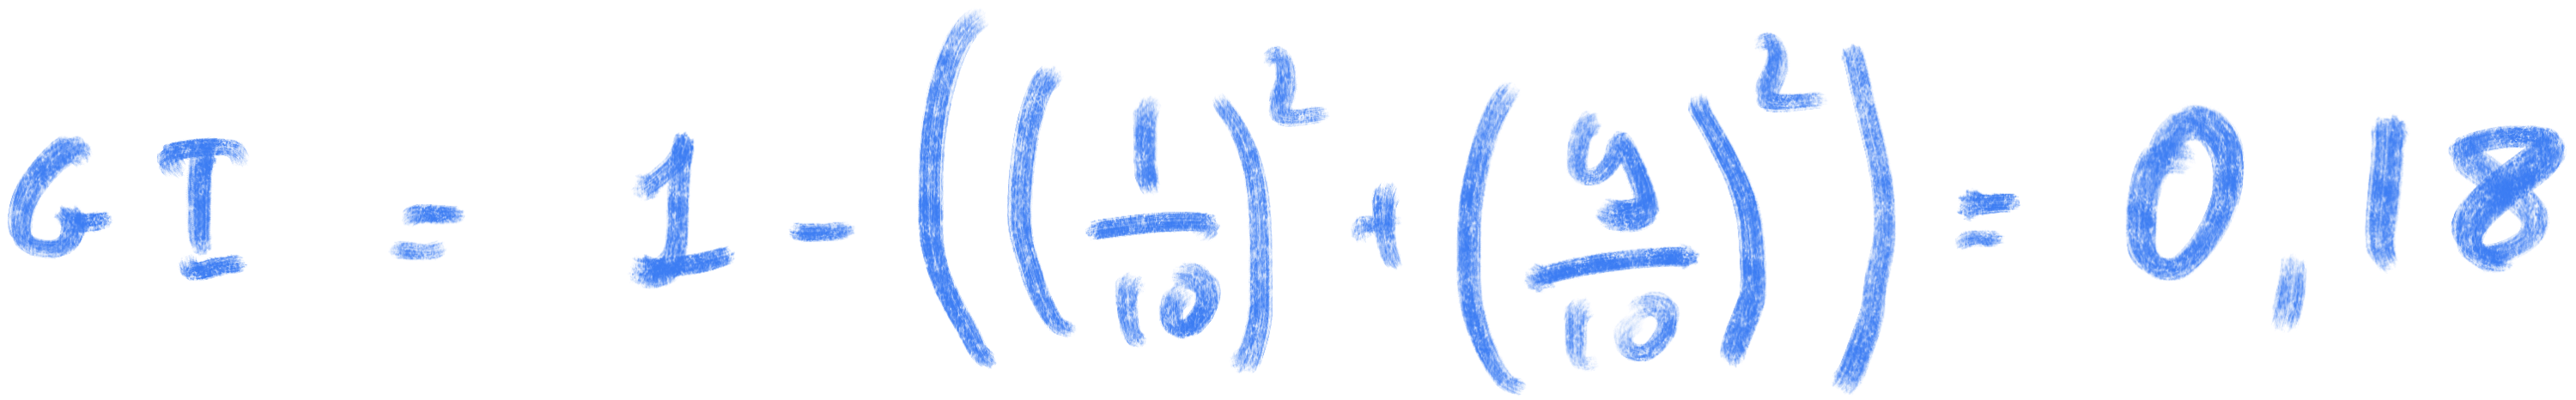 GI = 1 - ((1/10)² + (9/10)²) = 0,18